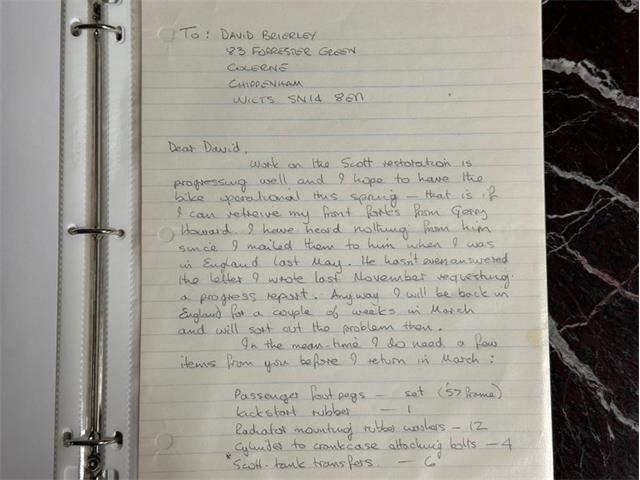 To: DAVID BRIERLEY
83 FORRESTER GREEN
COLERNE
CHIPPENHAM
WILTS SN14 8EN
Dear David,
Work on the Scott restoration is
progressing well and I hope to have the
bike operational this spring — that is if
I can retreive my front forks from Gerry
Howard. I have heard nothing from him
since I mailed them to him when I was
in England last May. He hasn't even answered
the letter I wrote last November requesting
a progress report. Anyway I will be back in
England for a couple of weeks in March
and will sort out the problem then.
In the mean-time I do need a few
items from you before I return in March:
Passenger foot pegs — set ('57 frame)
kickstart rubber — 1
Radiator mounting rubber washers — 12
Cylinder to crankcase attaching bolts — 4
* Scott-tank transfers — 6